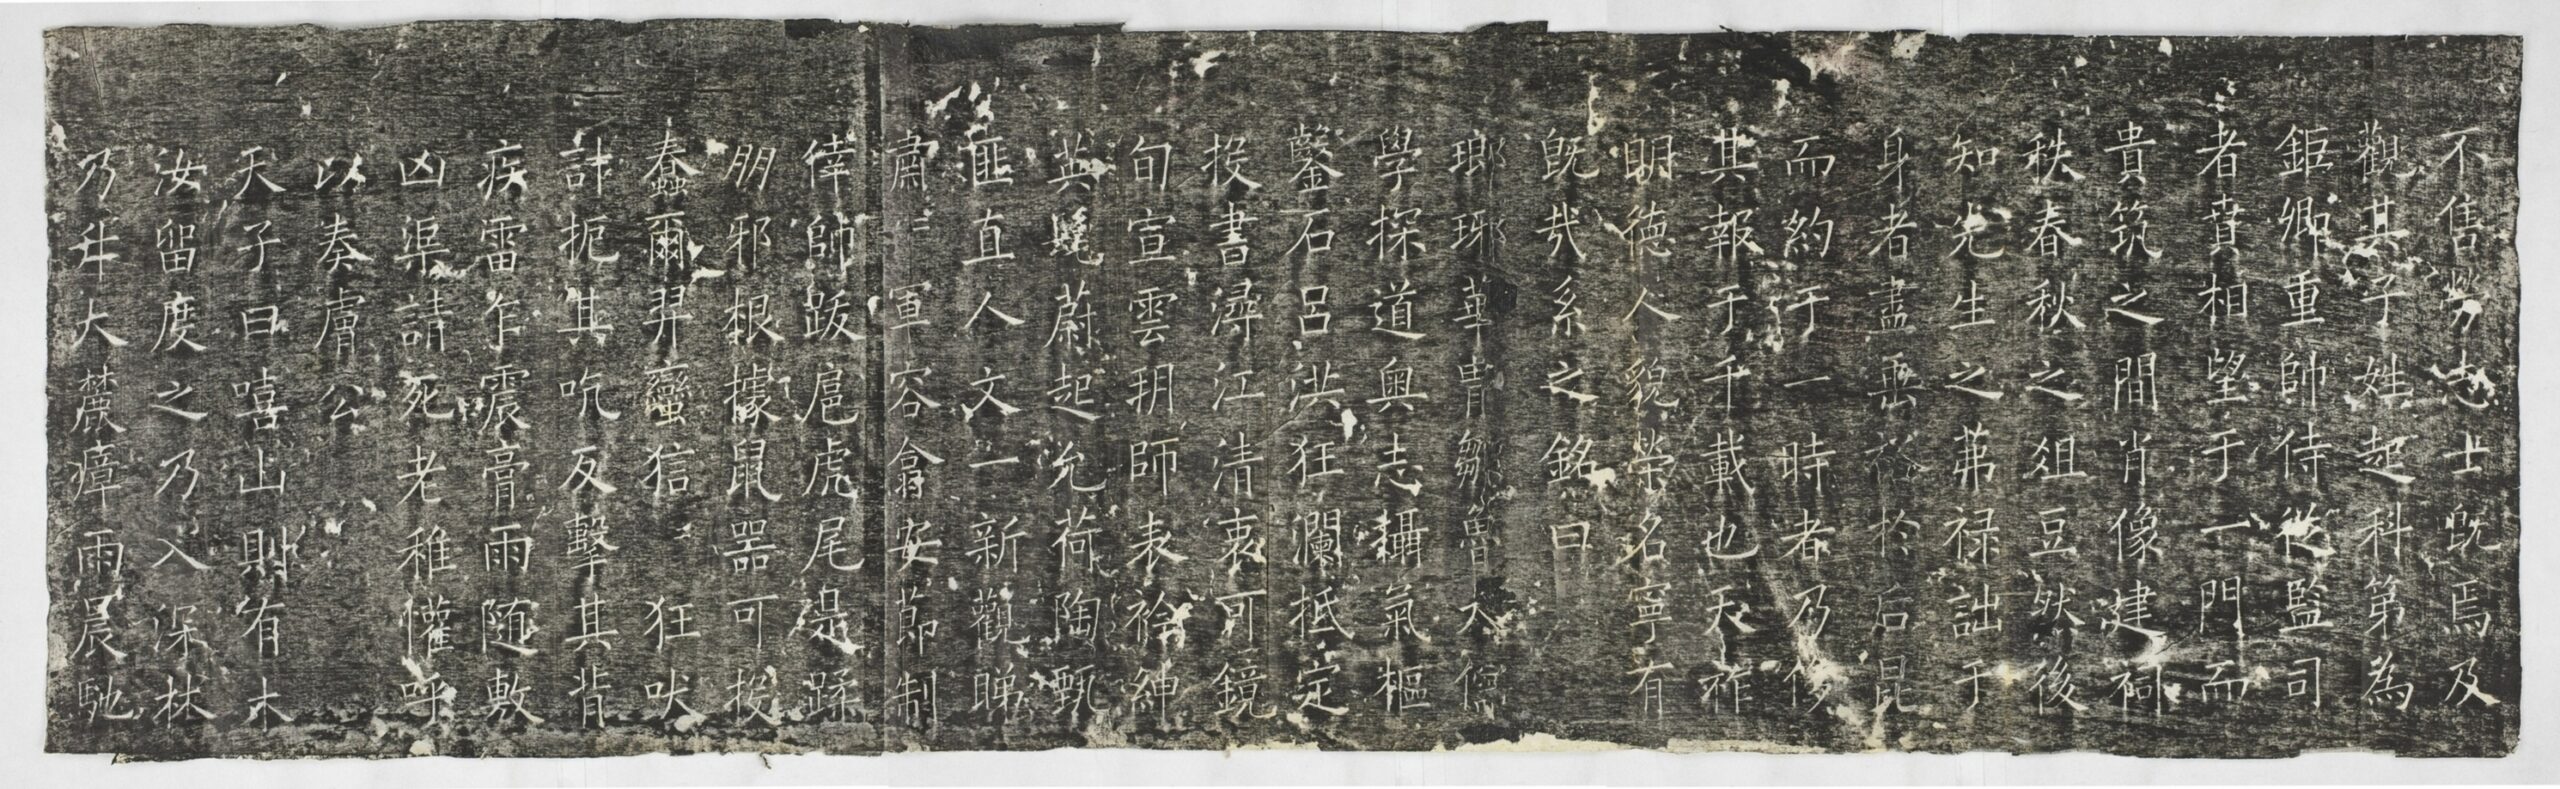 不售齎志士既焉及
觀其子姓起科第為
鉅卿重帥侍從監司
者蕡相望于一門而
貴筑之間肖像建祠
秩春秋之俎豆然後
知先生之茀祿詘于
身者盡垂裕於后昆
而約于一時者乃侈
其報于千載也天祚
明德人貌榮名寧有
既哉系之銘曰
瑯琊華胄鄒魯大儒
學探道奧志攝氣樞
鑿石呂洪狂瀾抵定
投書潯江清衷可鏡
旬宣雲玥師表衿紳
英髦蔚起沇荷陶甄
匪直人文一新觀睇
肅肅軍容翕安節制
倖帥跋扈虎尾是蹂
朋邪根據鼠器可投
蠢爾羿蠻狺狺狂吠
計扼其吭反擊其背
疾雷乍震膏雨隨敷
凶渠請死老稚懽呼
以奏膚公
天子曰嘻山則有木
汝留度之乃入深林
乃升大麓瘴雨晨馳